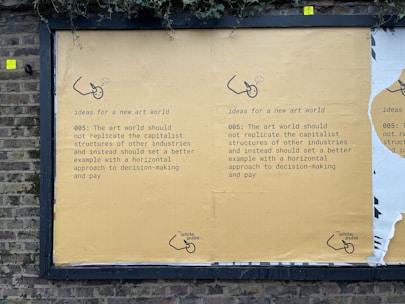 ideas for a new art world
005: The art world should
not replicate the capitalist
structures of other industries
and instead should set a better
example with a horizontal
approach to decision-making
and pay
the white
pube
ideas for a new art world
005: The art world should
not replicate the capitalist
structures of other industries
and instead should set a better
example with a horizontal
approach to decision-making
and pay
the white
pube
ideas
005:
not r
struct